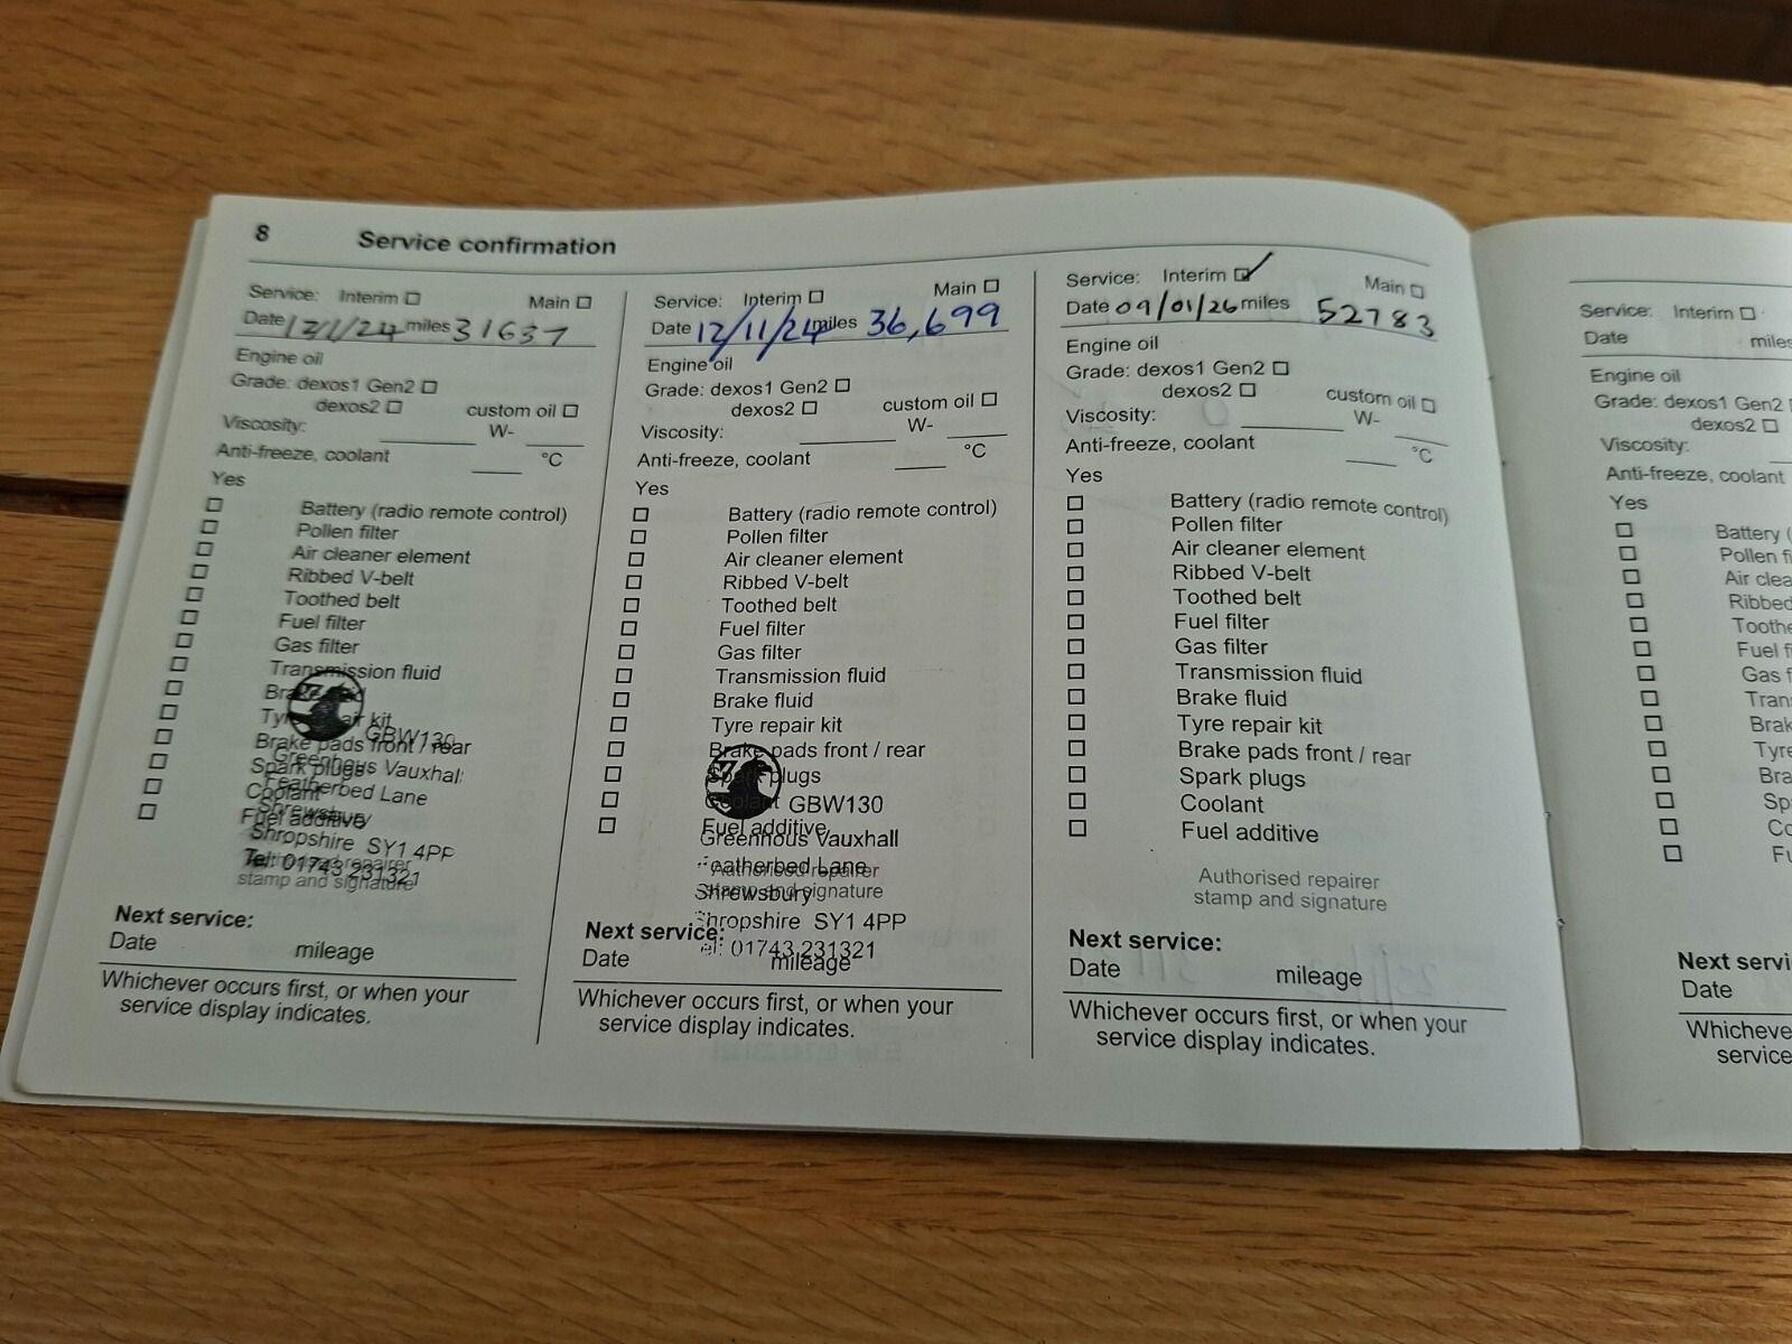 8 Service confirmation
Service: Interim Main
Date 12/1/24 miles 31637
Engine oil
Grade: dexos1 Gen2
dexos2 custom oil
Viscosity: W-
Anti-freeze, coolant °C
Yes
Battery (radio remote control)
Pollen filter
Air cleaner element
Ribbed V-belt
Toothed belt
Fuel filter
Gas filter
Transmission fluid
Brake fluid
Tyre repair kit
GBW130
Brake pads front / rear
Greenhous Vauxhall
Spark plugs
Featherbed Lane
Coolant
Shrewsbury
Fuel additive
Shropshire SY1 4PP
Tel: 01743 231321
Authorised repairer
stamp and signature
Next service:
Date mileage
Whichever occurs first, or when your
service display indicates.
Service: Interim Main
Date 12/11/24 miles 36,699
Engine oil
Grade: dexos1 Gen2
dexos2 custom oil
Viscosity: W-
Anti-freeze, coolant °C
Yes
Battery (radio remote control)
Pollen filter
Air cleaner element
Ribbed V-belt
Toothed belt
Fuel filter
Gas filter
Transmission fluid
Brake fluid
Tyre repair kit
Brake pads front / rear
Spark plugs
Coolant GBW130
Fuel additive
Greenhous Vauxhall
Featherbed Lane
Authorised repairer
stamp and signature
Shrewsbury
Shropshire SY1 4PP
Next service:
Tel: 01743 231321
Date mileage
Whichever occurs first, or when your
service display indicates.
Service: Interim Main
Date 09/01/26 miles 52783
Engine oil
Grade: dexos1 Gen2
dexos2 custom oil
Viscosity: W-
Anti-freeze, coolant °C
Yes
Battery (radio remote control)
Pollen filter
Air cleaner element
Ribbed V-belt
Toothed belt
Fuel filter
Gas filter
Transmission fluid
Brake fluid
Tyre repair kit
Brake pads front / rear
Spark plugs
Coolant
Fuel additive
Authorised repairer
stamp and signature
Next service:
Date mileage
Whichever occurs first, or when your
service display indicates.
Service: Interim
Date miles
Engine oil
Grade: dexos1 Gen2
dexos2
Viscosity:
Anti-freeze, coolant
Yes
Battery (
Pollen fi
Air clea
Ribbed
Toothe
Fuel fi
Gas f
Tran
Brak
Tyre
Bra
Sp
Co
Fu
Next servi
Date
Whicheve
service